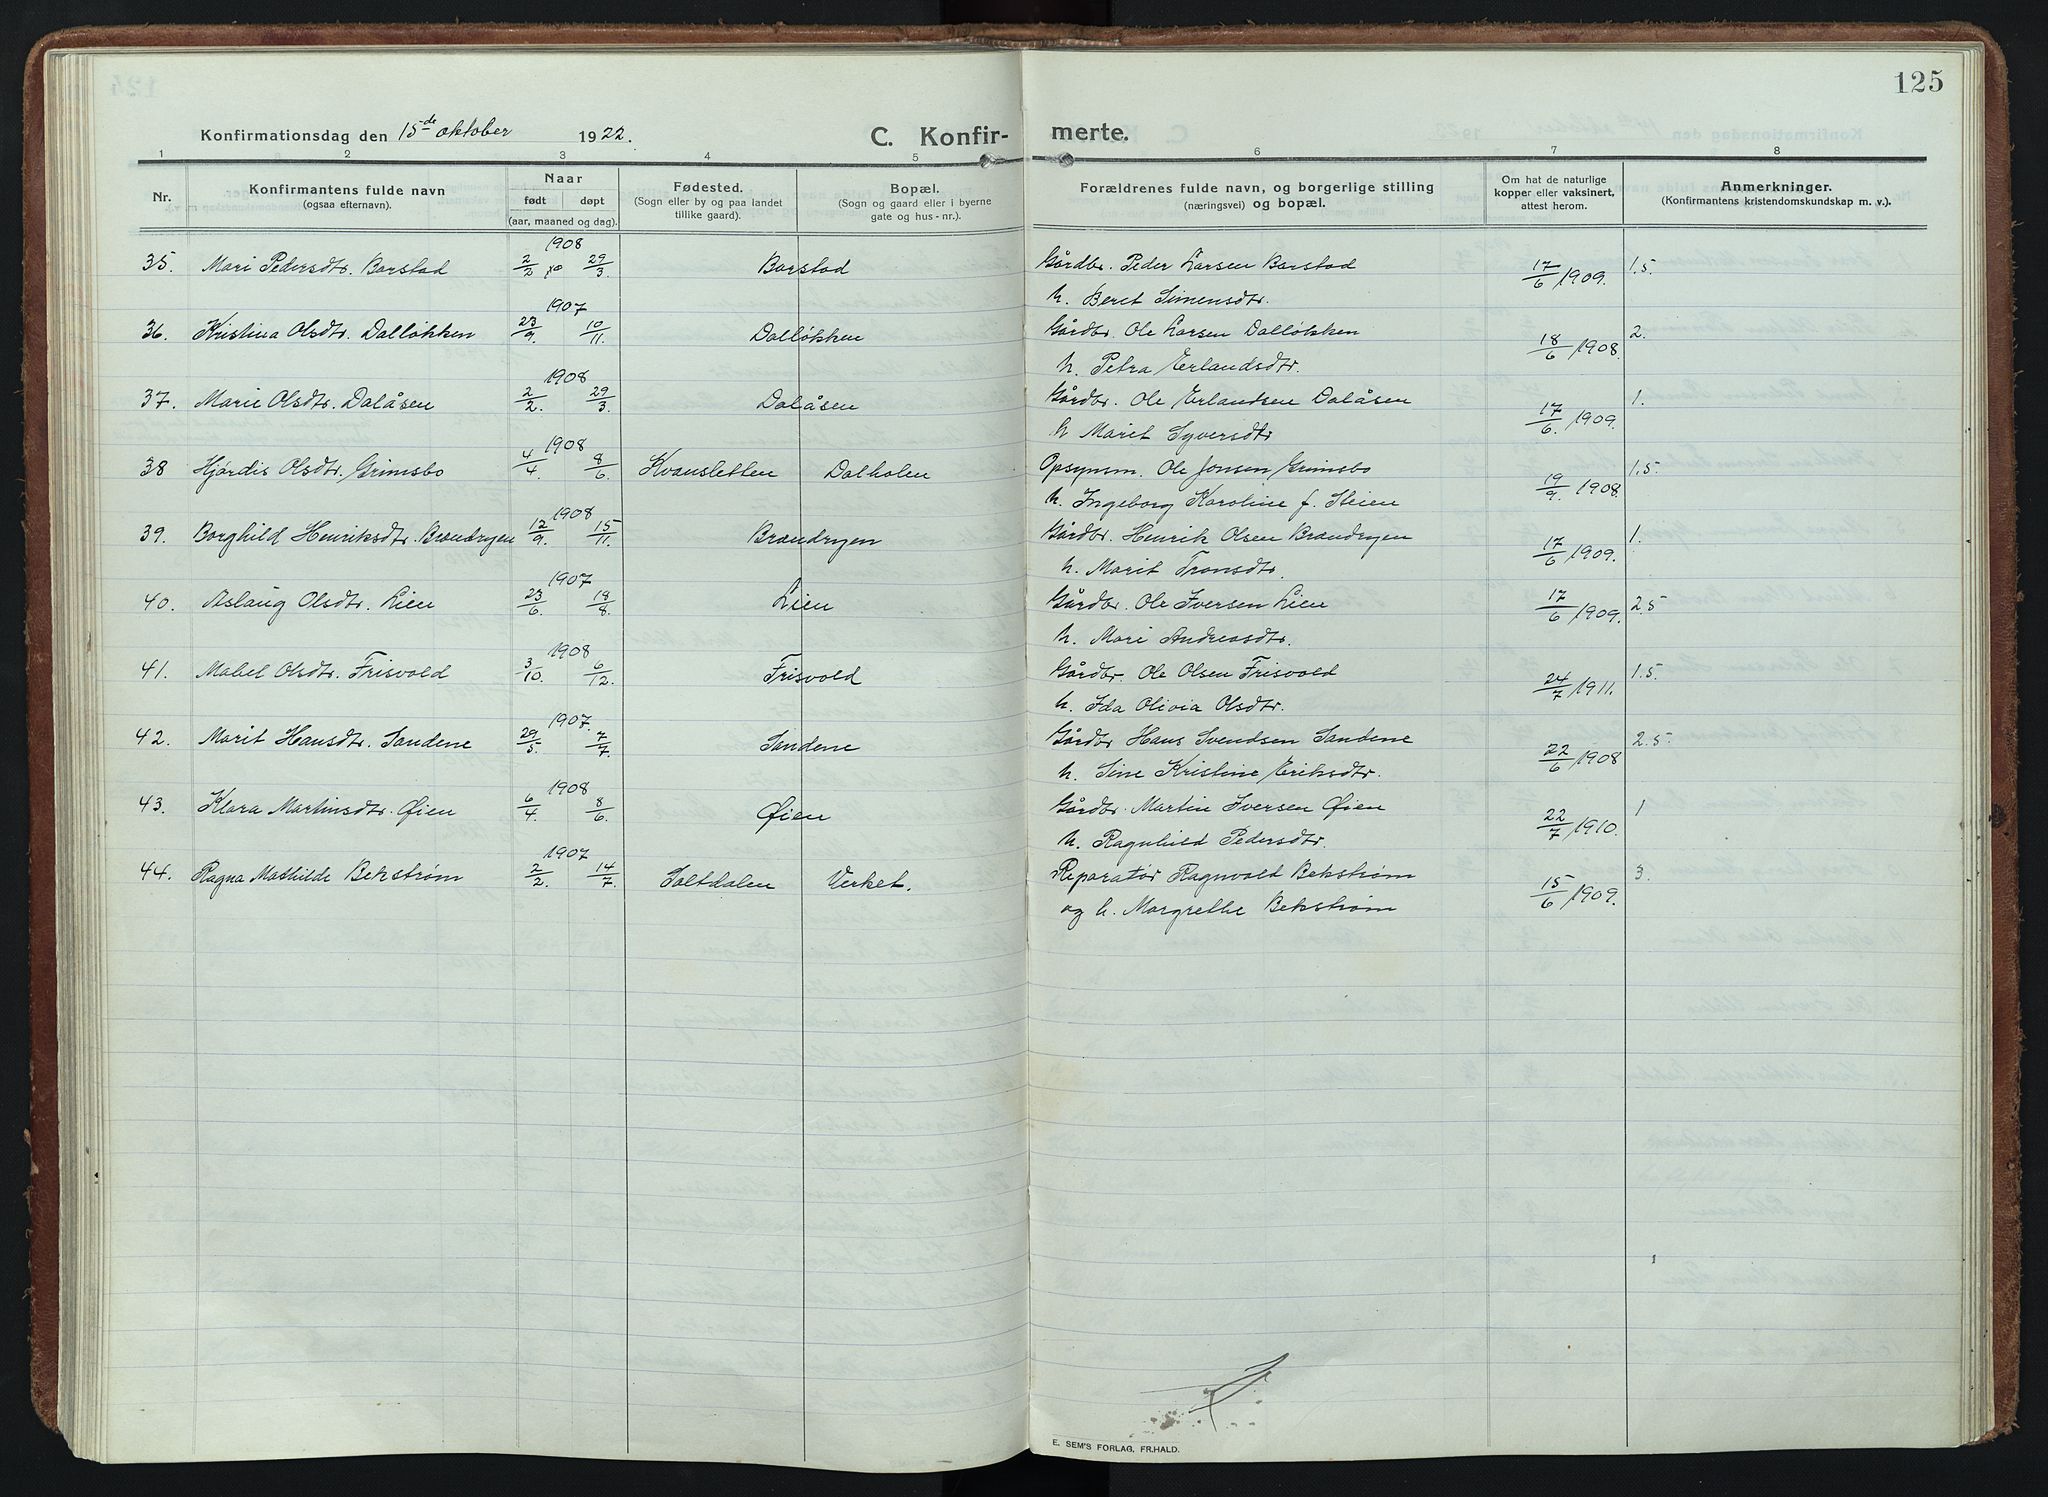 125
Konfirmationsdag den 15de oktober 1922.
C. Konfir-
merte.
1 2 3 4 5 6 7 8
Nr.
Konfirmantens fulde navn
(ogsaa efternavn).
Naar
født døpt
(aar, maaned og dag).
Fødested.
(Sogn eller by og paa landet
tillike gaard).
Bopæl.
(Sogn og gaard eller i byerne
gate og hus-nr.).
Forældrenes fulde navn, og borgerlige stilling
(næringsvei) og bopæl.
Om hat de naturlige
kopper eller vaksinert,
attest herom.
Anmerkninger.
(Konfirmantens kristendomskundskap m. v.).
1908
35. Mari Pedersdtr. Barstad 2/2 29/3. Barstad Gårdbr. Peder Larsen Barstad 17/6 1909. 1.5.
h. Beret Simensdtr.
1907
36. Kristina Olsdtr. Dalløkken 23/9. 10/11. Dalløkken Gårdbr. Ole Larsen Dalløkken 18/6 1908. 2.
h. Petra Erlandsdtr.
1908
37. Marie Olsdtr. Dalåsen 2/2. 29/3. Dalåsen Gårdbr. Ole Erlandsen Dalåsen 17/6. 1909. 1.
h Marit Syversdtr
1908
38 Hjørdis Olsdtr. Grimsbo 4/4. 8/6. Kvansletten Dalholen Opsynsm. Ole Jonsen Grimsbo 19/9. 1908. 1.5.
h. Ingeborg Karoline f. Steien
1908
39. Borghild Henriksdtr. Brandryen 12/9. 15/11. Brandryen Gårdbr. Henrik Olsen Brandryen 17/6 1909. 1.
h. Marit Tronsdtr.
1907
40. Aslaug Olsdtr. Lien 23/6. 18/8. Lien Gårdbr. Ole Iversen Lien 17/6 1909. 2.5
h. Mari Andreasdtr.
1908
41. Mabel Olsdtr. Frisvold 3/10. 6/12. Frisvold Gårdbr. Ole Olsen Frisvold 24/7 1911. 1.5.
h. Ida Olivia Olsdtr.
1907.
42. Marit Hansdtr. Sandene 29/5. 7/7. Sandene Gårdbr Hans Svendsen Sandene 22/6 1908 2.5.
h. Sine Kristine Eriksdtr.
1908
43. Klara Martinsdtr. Øien 6/4. 8/6. Øien Gårdbr. Martin Iversen Øien 22/7 1910. 1
h. Ragnhild Pedersdtr.
1907
44. Ragna Mathilde Bekstrøm 2/2. 14/7. Saltdalen Verket. Reparatør Ragnvald Bekstrøm 15/6 1909. 3.
og h. Margrethe Bekstrøm
E. SEM'S FORLAG, FR.HALD.